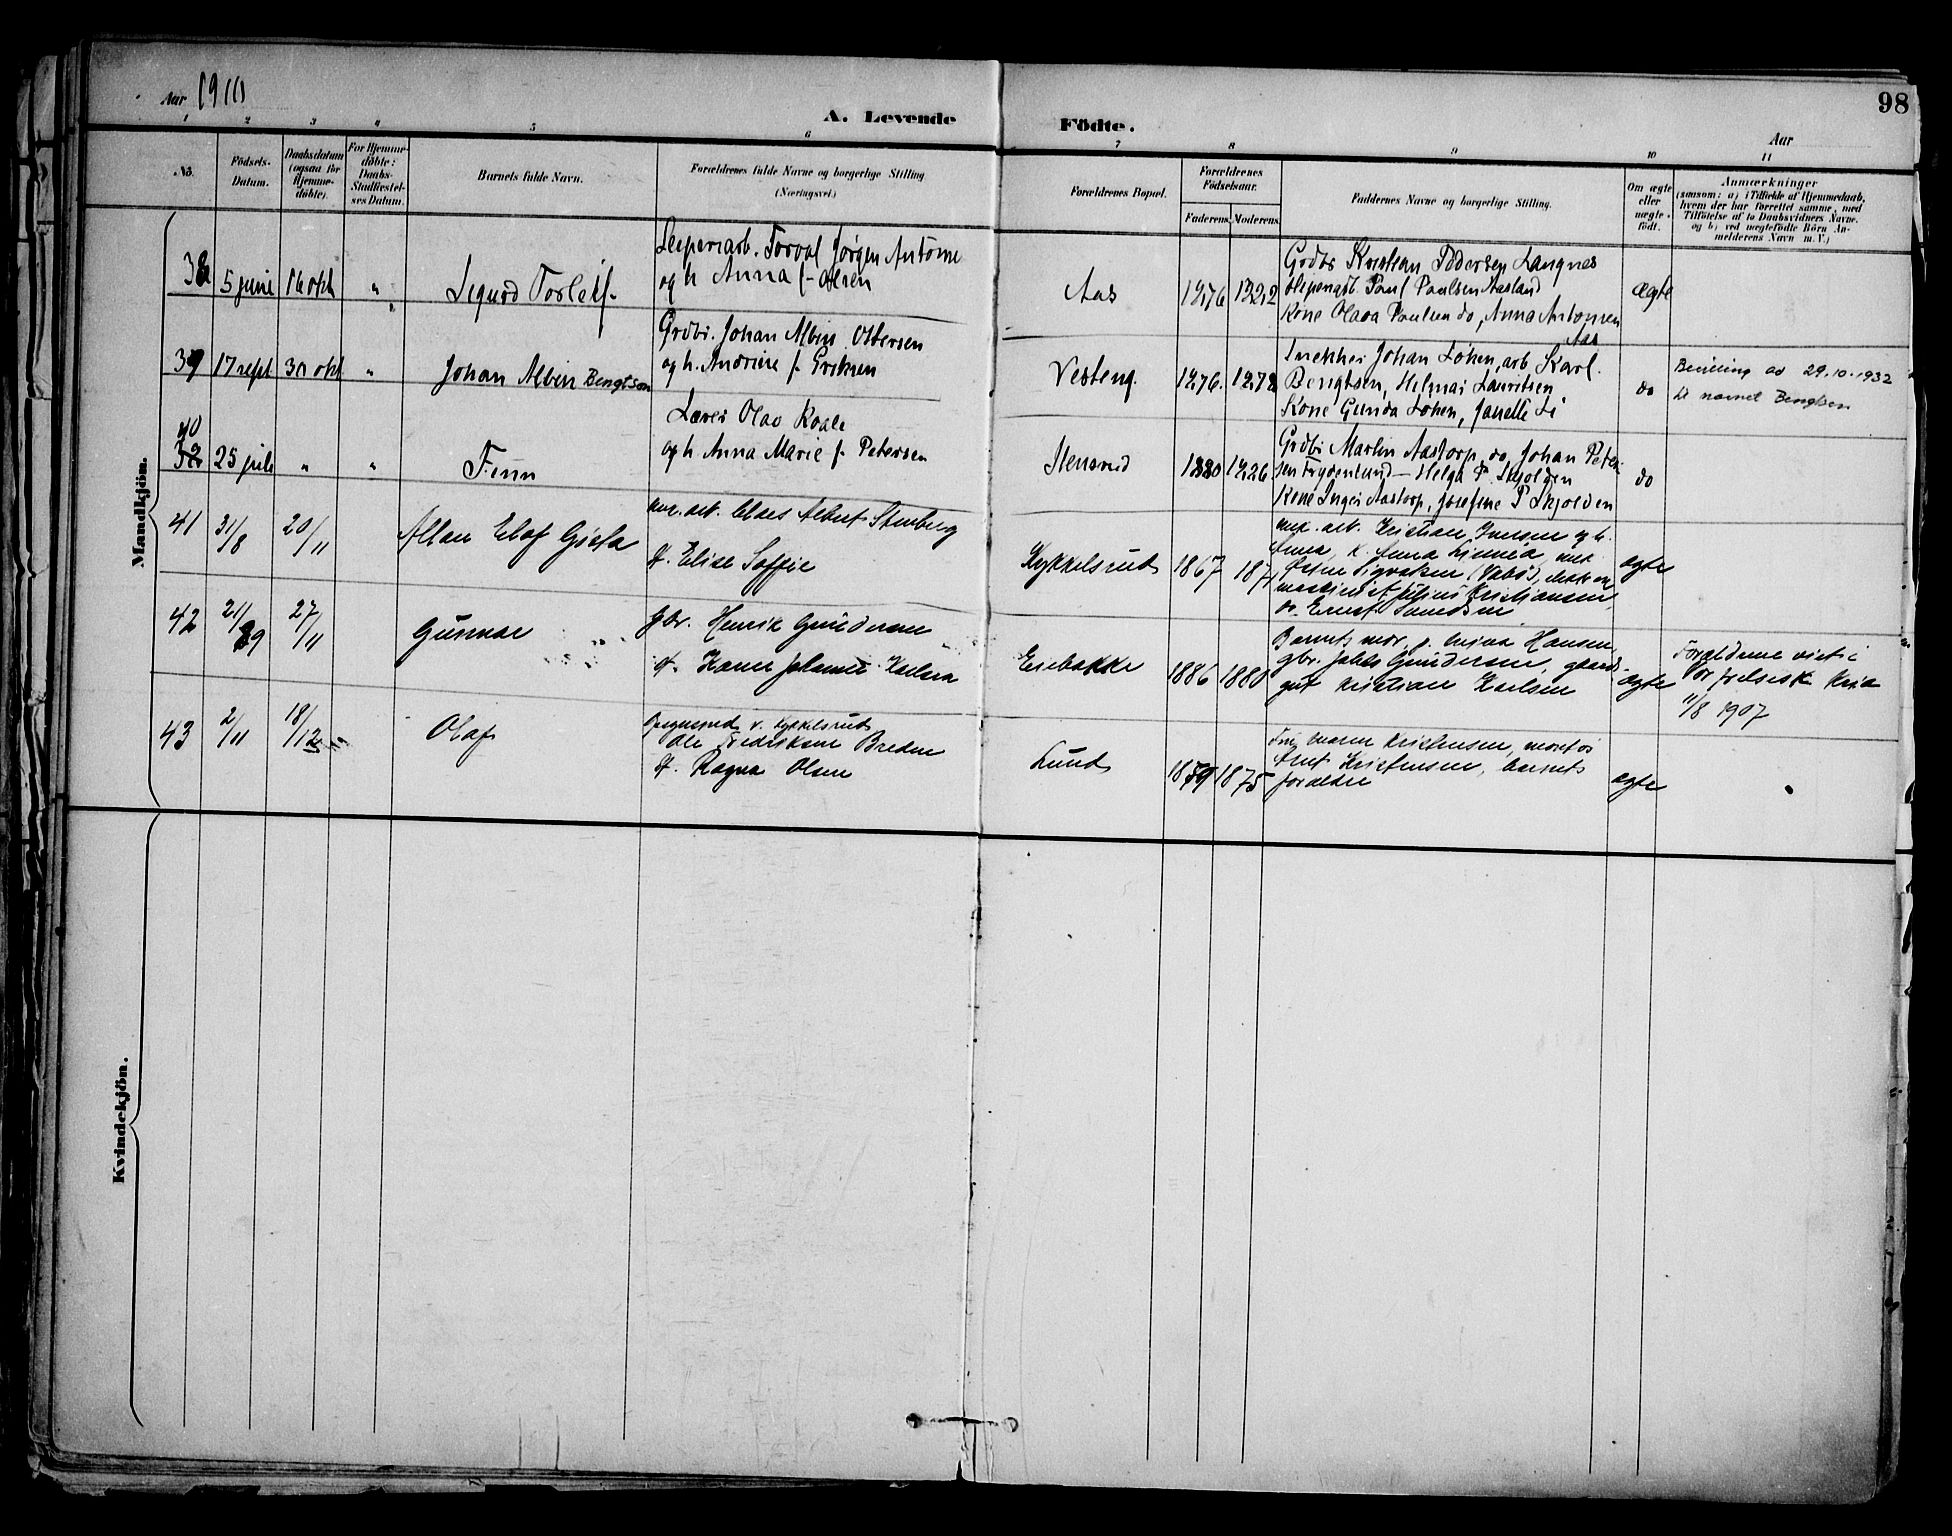 Aar 1910
A. Levende Födte.
Aar
98
1 2 3 4 5 6 7 8 9 10 11
No.
Födsels-
Datum.
Daabsdatum
(ogsaa for
Hjemme-
döbte).
For Hjemme-
döbte:
Daabs-
Stadfæstel-
ses Datum.
Barnets fulde Navn.
Forældrenes fulde Navne og borgerlige Stilling
(Næringsvei.)
Forældrenes Bopæl.
Forældrenes
Födselsaar.
Faderens Moderens
Faddernes Navne og borgerlige Stilling.
Om ægte
eller
uægte
födt.
Anmærkninger
(saasom: a) i Tilfælde af Hjemmedaab,
hvem der har forrettet samme, med
Tilföielse af to Daabsvidners Navne.
og b) ved uægtefödte Börn An-
melderens Navn m. V.)
Mandkjön.
38 5 juni 16 okt "
Sigurd Torleif.
Torval Jørgen Antonse
og h Anna f. Olsen
Aas
1876 1882
Grdbr Kristian Pedersen Langnes
Paul Paulsen Aasland
Kone Olava Paulsen do, Anna Antonsen
Aas
ægte
39 17 sept 30 okt "
Johan Albin Bengtson
Grdbr. Johan Albin
og h. Andrine f. Eriksen
Vesteng.
1876. 1878
Johan Lohen, arb Karl.
Bengtsen, Helmer Lauritsen
Kone Gunda Lohen, Janette Li
do
Bevilling av 29.10.1932
til navnet Bengtson
40
32 25 juli " "
Finn
Lærer Olav
og h. Anna Marie f. Petersen
Stensrud
1880 1886.
Grdbr Martin Aastorp, do, Johan Peter
sen Frydenlund - Helga P. Skjolden
Kone Inger Aastorp, Josefine P Skjolden
do
41 31/8 20/11
Allan Elof Gösta
Claes Albert Stenberg
Elise Soffie
Kykkelsrud
1867 1871
Kristian Iversen og h.
Anna, K. Anna
maskinist Julius Kristiansen,
do. Ernst
ægte
42 21/9 27/11
Gunnar
gbr. Henrik Gundersen
Karen Johanne Karlsen
Enebakke
1886 1880
Barnets mor, Hansen,
gbr. Gundersen, gaards-
gut Kristian Karlsen
ægte
Forældrene viet i
Vor frelsers k Kria
11/8 1907
43 2/11 18/12
Olaf
v. Kykkelsrud
Ole Fredriksen
Ragna Olsen
Lund
1859 1875
Maren Kristensen,
Kristensen, barnets
forældre
ægte
Kvindekjön.